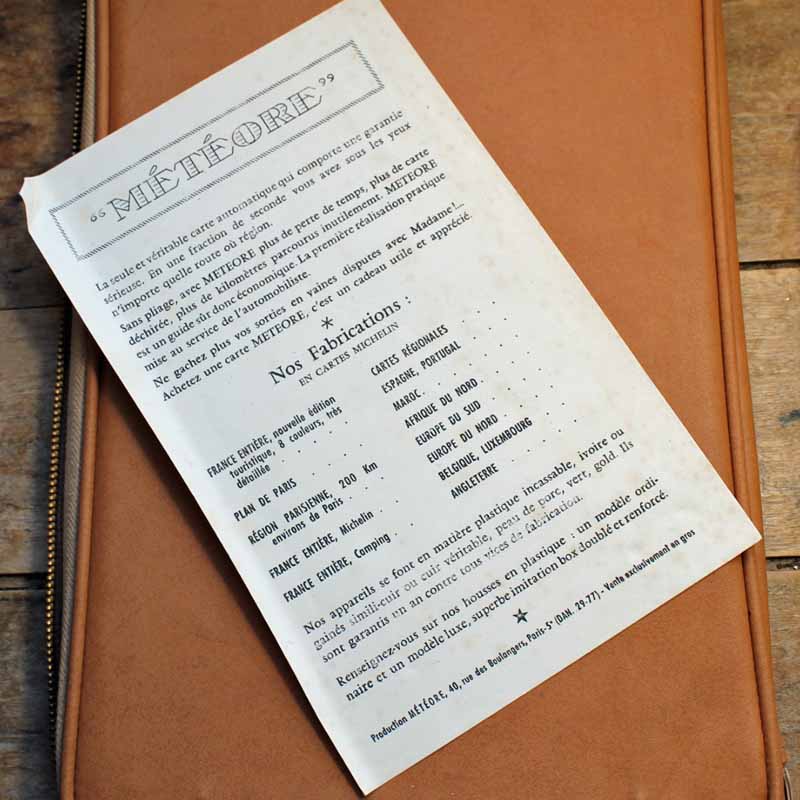 “ MÉTÉORE ”
La seule et véritable carte automatique qui comporte une garantie
sérieuse. En une fraction de seconde vous avez sous les yeux
n'importe quelle route où région.
Sans pliage, avec METEORE plus de perte de temps, plus de carte
déchirée, plus de kilomètres parcourus inutilememt. METEORE
est un guide sûr donc économique. La première réalisation pratique
mise au service de l'automobiliste.
Ne gachez plus vos sorties en vaines disputes avec Madame !...
Achetez une carte METEORE, c'est un cadeau utile et apprécié.
*
Nos Fabrications :
EN CARTES MICHELIN
FRANCE ENTIÈRE, nouvelle édition
touristique, 8 couleurs, très
détaillée . . . . .
PLAN DE PARIS . . . .
RÉGION PARISIENNE, 200 Km
environs de Paris . . . .
FRANCE ENTIÈRE, Michelin . .
FRANCE ENTIÈRE, Camping . .
CARTES RÉGIONALES . . .
ESPAGNE, PORTUGAL . . .
MAROC . . . . .
AFRIQUE DU NORD . . . .
EUROPE DU SUD . . . .
EUROPE DU NORD . . . .
BELGIQUE, LUXEMBOURG . .
ANGLETERRE . . . .
Nos appareils se font en matière plastique incassable, ivoire ou
gainés simili-cuir ou cuir véritable, peau de porc, vert, gold. Ils
sont garantis un an contre tous vices de fabrication.
Renseignez-vous sur nos housses en plastique : un modèle ordi-
naire et un modèle luxe, superbe imitation box doublé et renforcé.
★
Production MÉTÉORE, 40, rue des Boulangers, Paris-5e (DAN. 29-77) - Vente exclusivement en gros